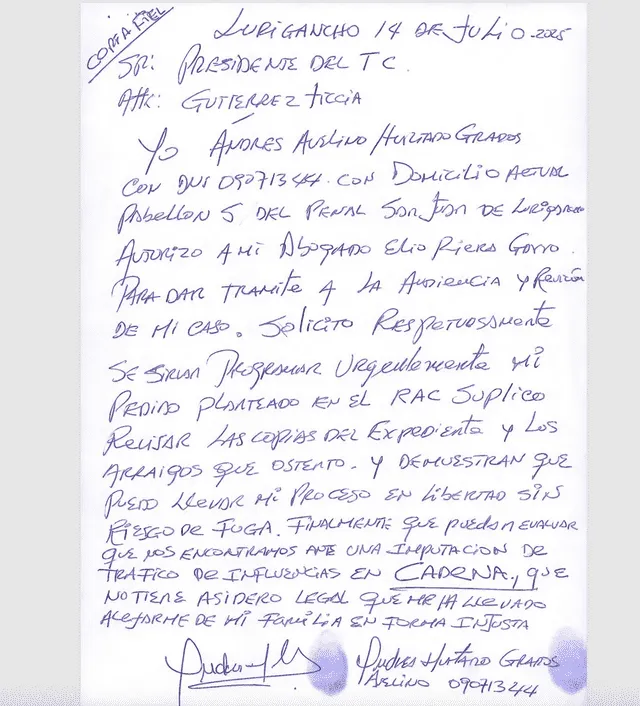 COPIA FIEL
LURIGANCHO 14 DE JULIO.2025
SR: PRESIDENTE DEL TC.
Att: GUTIERREZ TICCIA
Yo ANDRES AVELINO HURTADO GRADOS
CON DNI 09071344. CON DOMICILIO ACTUAL
PABELLON 5 DEL PENAL SAN JUAN DE LURIGANCHO
AUTORIZO A MI ABOGADO ELIO RIERA
PARA DAR TRAMITE A LA AUDIENCIA Y REVISIÓN
DE MI CASO. SOLICITO RESPETUOSAMENTE
SE SIRVAN PROGRAMAR URGENTEMENTE MI
PEDIDO PLANTEADO EN EL RAC SUPLICO
REVISAR LAS COPIAS DEL EXPEDIENTE Y LOS
ARRAIGOS QUE OSTENTO. Y DEMUESTRAN QUE
PUEDO LLEVAR MI PROCESO EN LIBERTAD SIN
RIESGO DE FUGA. FINALMENTE QUE PUEDAN EVALUAR
QUE NOS ENCONTRAMOS ANTE UNA IMPUTACION DE
TRAFICO DE INFLUENCIAS EN CADENA., QUE
NO TIENE ASIDERO LEGAL QUE ME HA LLEVADO
ALEJARME DE MI FAMILIA EN FORMA INJUSTA
ANDRES HURTADO GRADOS
AVELINO 09071344